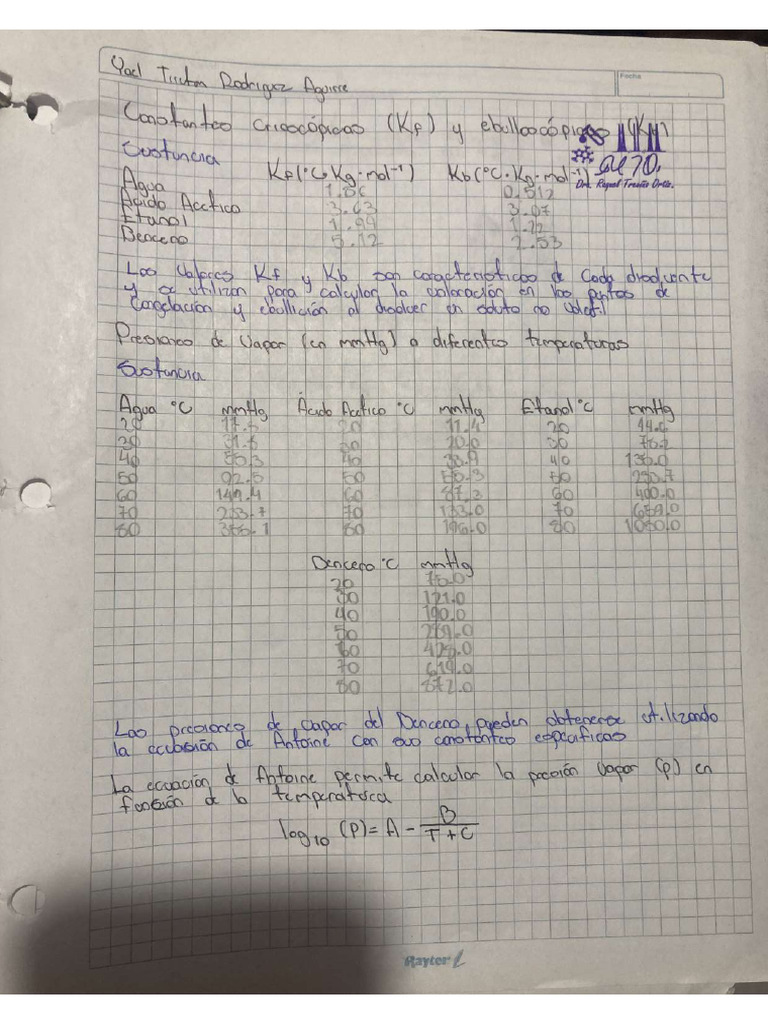 Yael Rodriguez Aguirre
Fecha
Constantes Crioscópicas (Kf) y ebulloscópicas (Kb)
Sustancia Kf (°C·Kg·mol⁻¹) Kb (°C·Kg·mol⁻¹)
Dra. Raquel Treviño Ortiz.
Agua 1.86 0.512
Ácido Acetico 3.63 3.07
Etanol 1.99 1.22
Benceno 5.12 2.53
Los valores Kf y Kb son caracteristicos de Cada disolvente
y se utilizan para calcular la en los puntos de
Congelación y ebullición al disolver un soluto no volatil
Presiones de Vapor (en mmHg) a diferentes temperaturas
Sustancia
Agua °C mmHg Ácido Acetico °C mmHg Etanol °C mmHg
20 17.5 20 11.4 20
30 31.8 30 20.0 30
40 55.3 40 40
50 92.5 50 50
60 149.4 60 87.3 60 400.0
70 233.7 70 133.0 70
80 355.1 80 196.0 80
Benceno °C mmHg
20 75.0
30 121.0
40 190.0
50 289.0
60 428.0
70 619.0
80 872.0
Las presiones de vapor del Benceno, pueden obtenerse utilizando
la ecuasión de Antoine con sus constantes especificas
La ecuación de Antoine permite calcular la presión vapor (p) en
función de la temperatura
log₁₀ (P) = A - B / T + C
Rayter